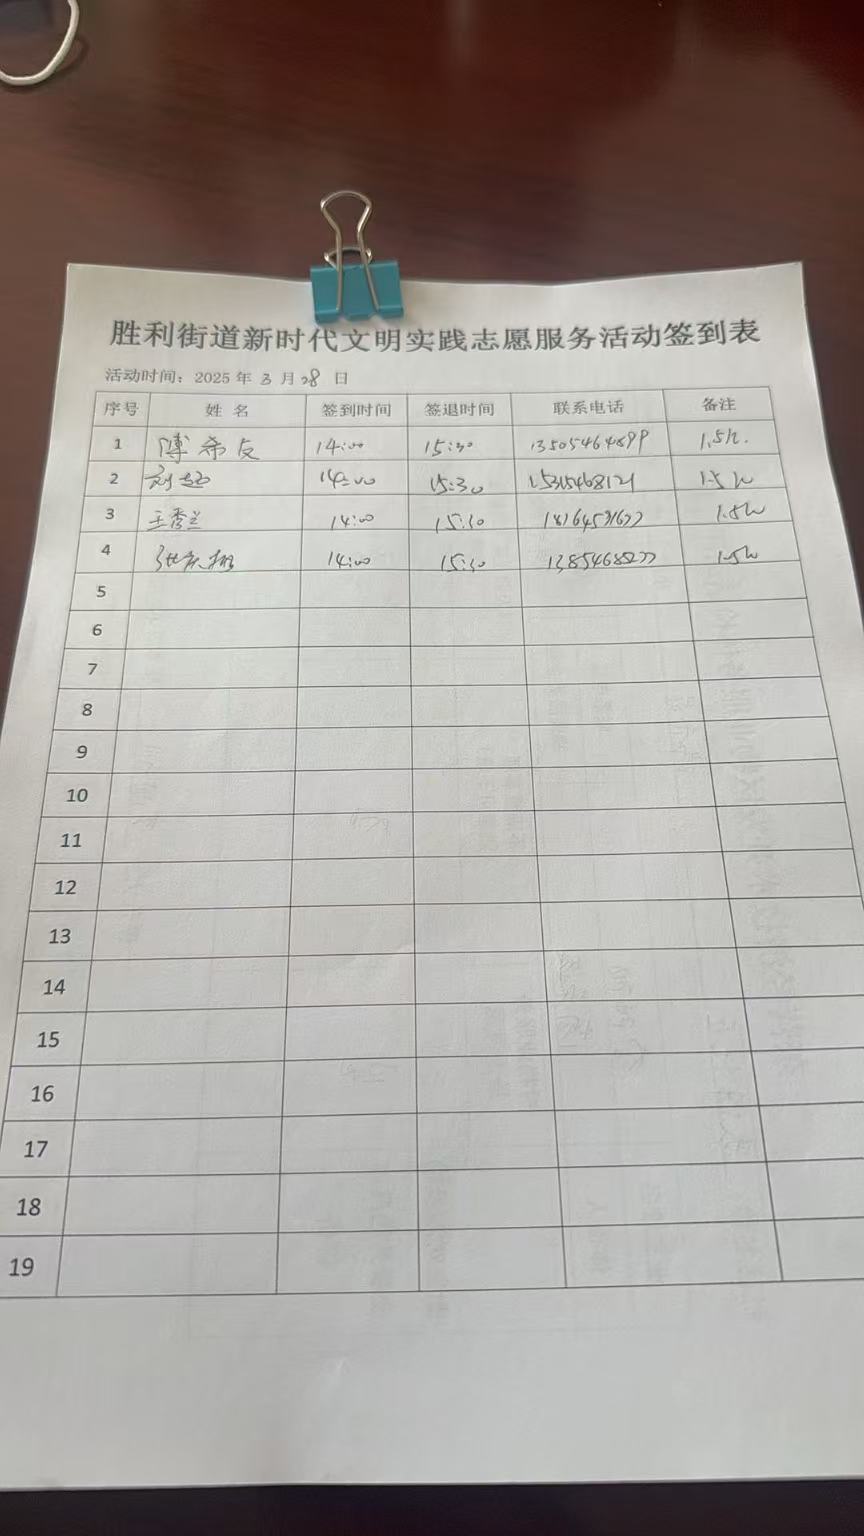 胜利街道新时代文明实践志愿服务活动签到表
活动时间：2025 年 3 月 28 日
序号 姓 名 签到时间 签退时间 联系电话 备注
1 傅希友 14:00 15:30 13505464899 1.5h.
2 14:00 15:30 15315468121 1.5h
3 王秀兰 14:00 15:30 1.5h
4 14:00 15:30 1.5h
5
6
7
8
9
10
11
12
13
14
15
16
17
18
19